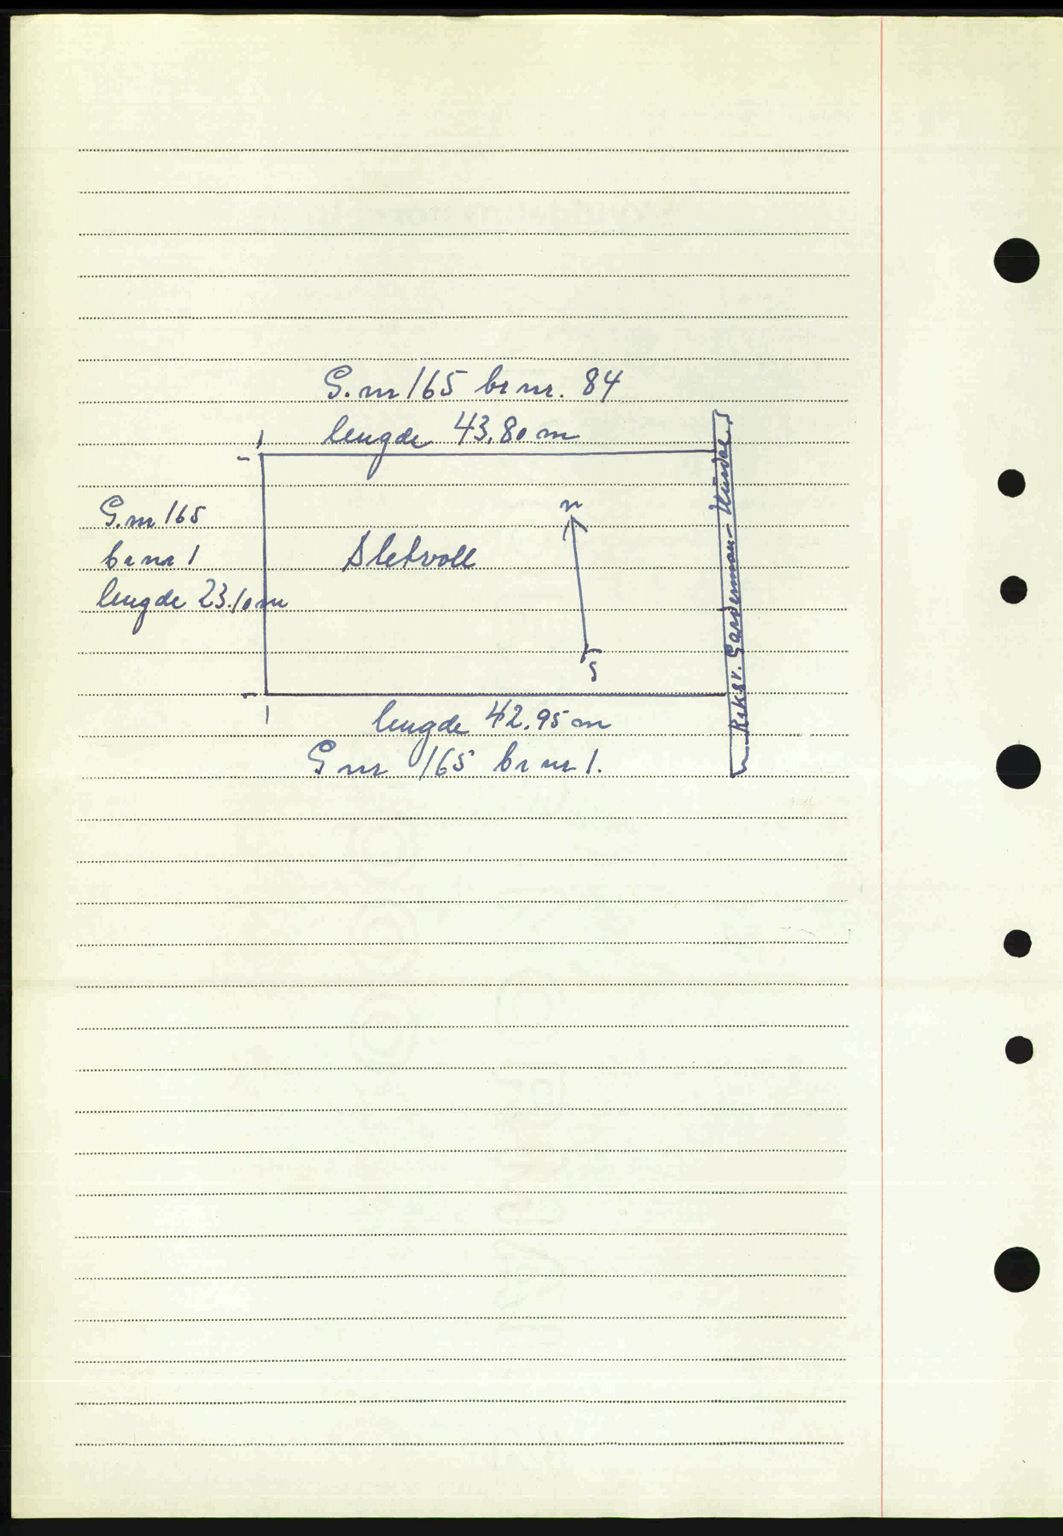 G.nr 165 br nr. 84
lengde 43.80 m
G.nr 165
br nr 1
lengde 23.10 m
Sletvoll
n
s
Riksv. Gardermoen-
lengde 42.95 m
G nr 165 br nr 1.